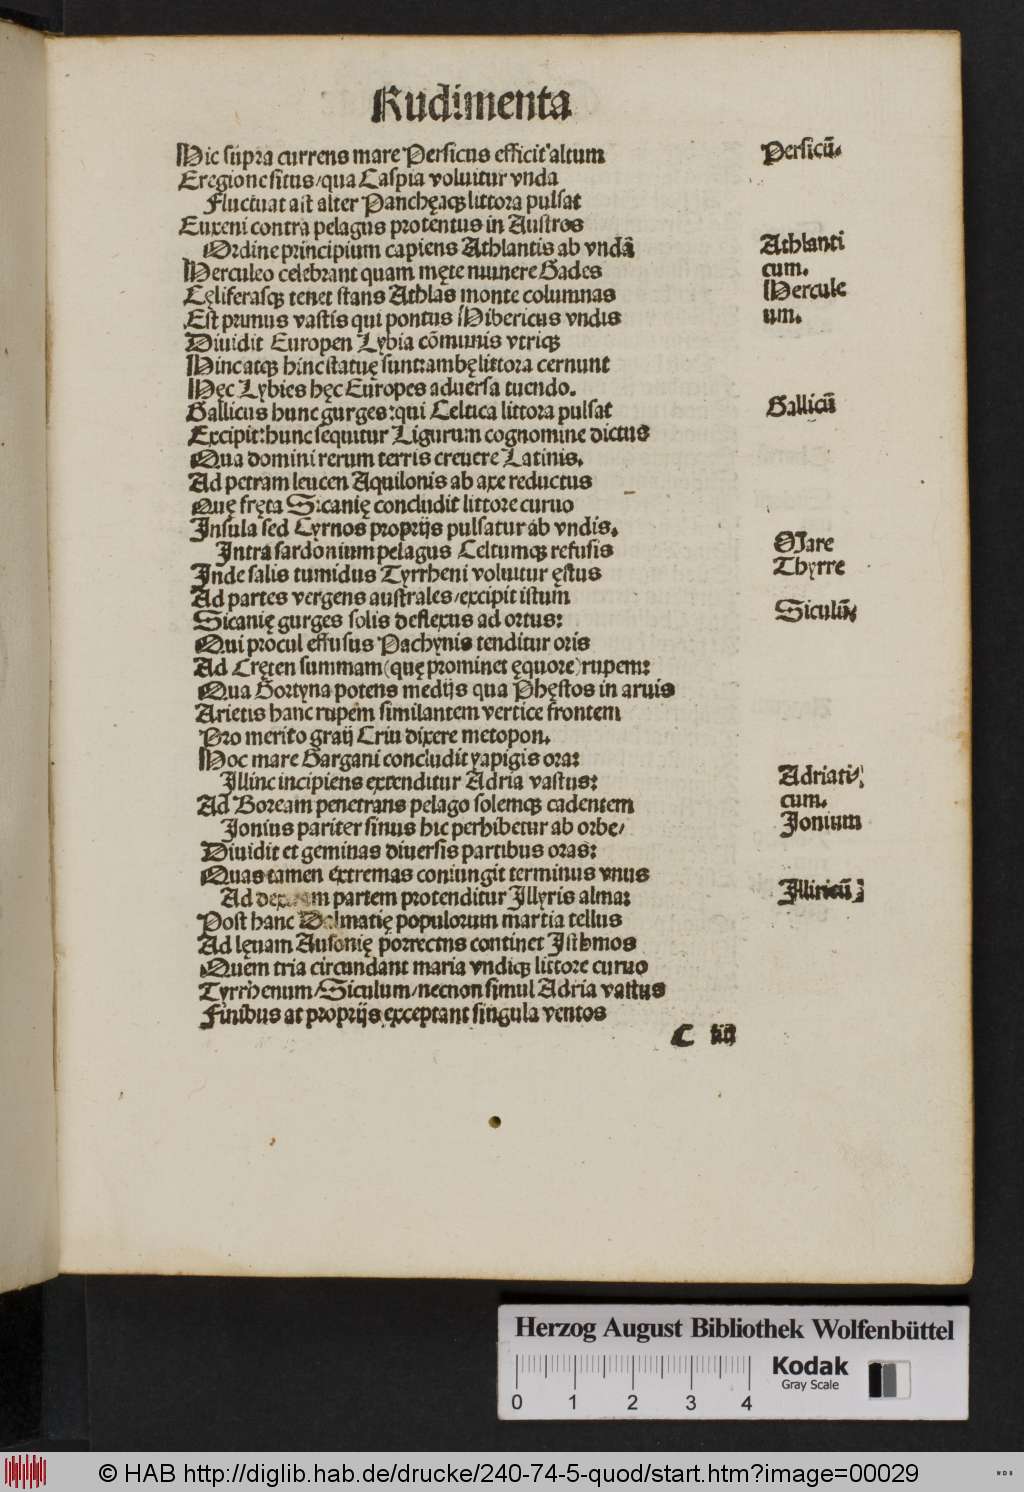 Rudimenta
Hic supra currens mare Persicus efficit altum
Persicū.
E regione situs/qua Caspia voluitur vnda
Fluctuat ast alter Panchęaqꝫ littora pulsat
Euxeni contra pelagus protentus in Austros
Ordine principium capiens Athlantis ab vndā
Athlanti
Herculeo celebrant quam męte munere Gades
cum.
Cęliferasqꝫ tenet stans Athlas monte columnas
Hercule
Est primus vastis qui pontus Hibericus vndis
um.
Diuidit Europen Lybia cōmunis vtriqꝫ
Hincatqꝫ hinc statuę sunt:ambę littora cernunt
Hęc Lybies hęc Europes aduersa tuendo.
Gallicus hunc gurges:qui Celtica littora pulsat
Gallicū
Excipit:hunc sequitur Ligurum cognomine dictus
Qua domini rerum terris creuere Latinis.
Ad petram leucen Aquilonis ab axe reductus
Quę fręta Sicanię concludit littore curuo
Insula sed Cyrnos proprijs pulsatur ab vndis.
Intra sardonium pelagus Celtumqꝫ refusis
Mare
Inde salis tumidus Tyrrheni voluitur ęstus
Thyrre
Ad partes vergens australes/excipit istum
Sicanię gurges solis deflexus ad ortus:
Siculū
Qui procul effusus Pachynis tenditur oris
Ad Cręten summam(quę prominet ęquore)rupem:
Qua Gortyna potens medijs qua Phęstos in aruis
Arietis hanc rupem similantem vertice frontem
Pro merito graij Criu dixere metopon.
Hoc mare Gargani concludit yapigis ora:
Illinc incipiens extenditur Adria vastus:
Adriati
Ad Boream penetrans pelago solemqꝫ cadentem
cum.
Jonius pariter sinus hic perhibetur ab orbe/
Jonium
Diuidit et geminas diuersis partibus oras:
Quas tamen extremas coniungit terminus vnus
Ad dextram partem protenditur Illyris alma:
Illiricū
Post hanc Dalmatię populorum martia tellus
Ad lęuam Ausonię porrectns continet Isthmos
Quem tria circundant maria vndiqꝫ littore curuo
Tyrrhenum/Siculum/necnon simul Adria vastus
Finibus at proprijs exceptant singula ventos
C iiij
Herzog August Bibliothek Wolfenbüttel
Kodak
Gray Scale
0 1 2 3 4
© HAB http://diglib.hab.de/drucke/240-74-5-quod/start.htm?image=00029